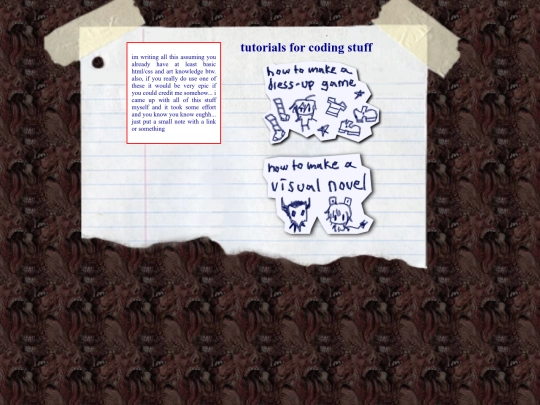 tutorials for coding stuff
im writing all this assuming you
already have at least basic
html/css and art knowledge btw.
also, if you really do use one of
these it would be very epic if
you could credit me somehow... i
came up with all of this stuff
myself and it took some effort
and you know you know eughh...
just put a small note with a link
or something
how to make a
dress-up game
how to make a
visual novel